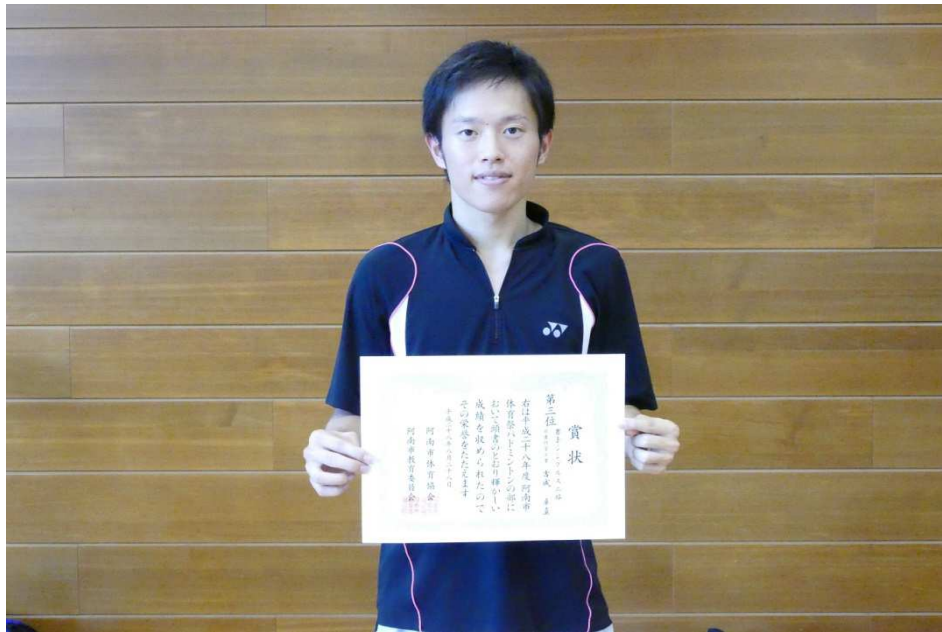 賞状
第三位
右は平成二十八年度阿南市
体育祭バドミントンの部に
おいて頭書のとおり輝かしい
成績を収められたので
その栄誉をたたえます
平成二十八年八月二十八日
阿南市体育協会
阿南市教育委員会